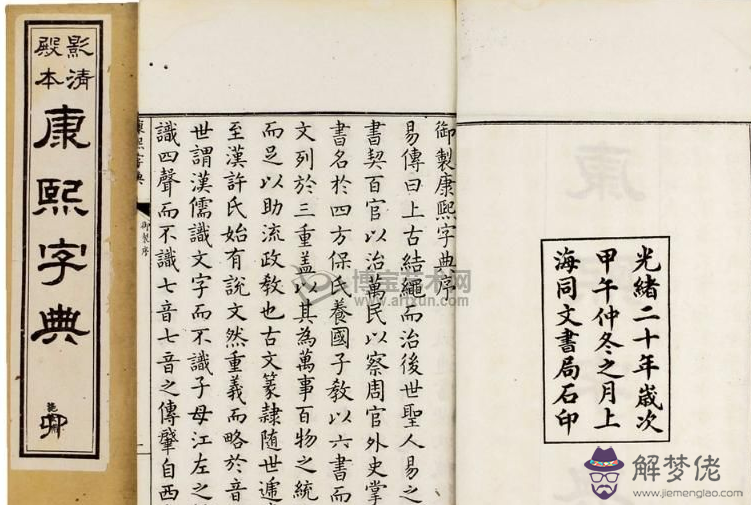 影清
殿本
康熙字典
光緒二十年歲次
甲午仲冬之月上
海同文書局石印
御製康熙字典序
易傳曰上古結繩而治後世聖人易之
書契百官以治萬民以察周官外史掌
書名於四方保氏養國子教以六書而
文列於三重蓋以其為萬事百物之統
而足以助流政教也古文篆隸隨世遞
至漢許氏始有說文然重義而略於音
世謂漢儒識文字而不識子母江左之
識四聲而不識七音七音之傳肇自西
康熙字典
御製序
博宝艺术网
www.artxun.com
解梦佬
www.jiemenglao.com